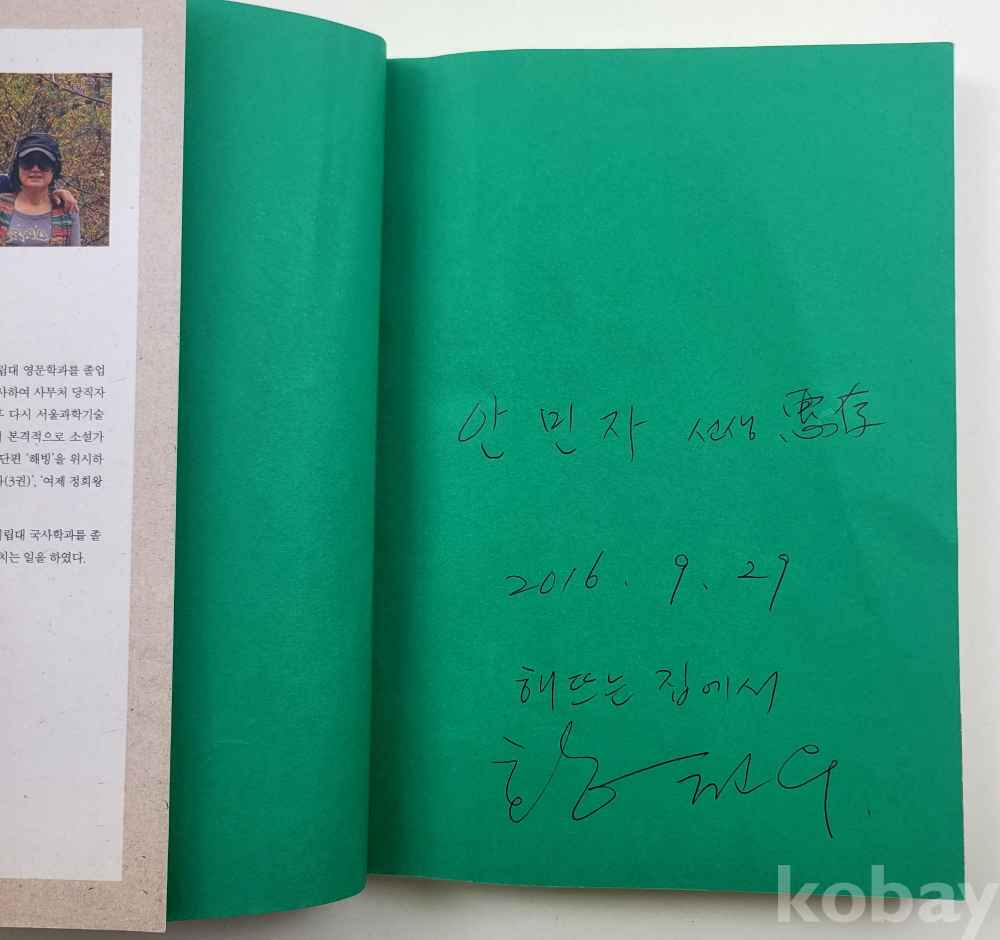 립대 영문학과를 졸업
사하여 사무처 당직자
다시 서울과학기술
본격적으로 소설가
단편 ‘해빙’을 위시하
(3권)’, ‘여제 정희왕
립대 국사학과를 졸
치는 일을 하였다.
안 민 자 선생 惠存
2016. 9. 29
해뜨는 집에서
황천우.
kobay